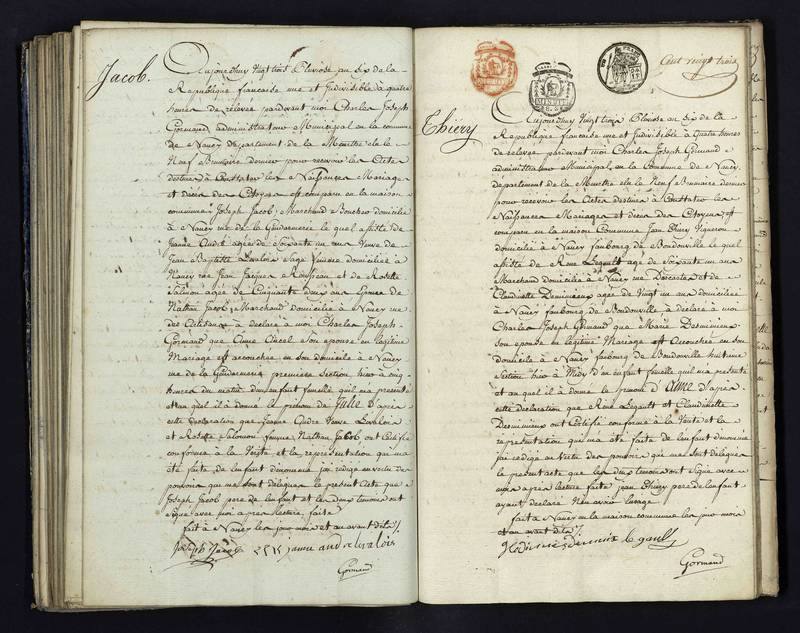 Jacob.
Aujourdhuy Vingt trois Pluviose an Six de la
Republique francaise une et Indivisible à quatre
heures de relevée pardevant moi Charles Joseph
Gormand administrateur Municipal en la commune
de Nancy departement de la Meurthe elu le
Neuf Brumaire dernier pour recevoir les Actes
destinés à Constatter les Naissances Mariages
et décès des Citoyens est comparu en la maison
commune Joseph Jacob, Marchand Boucher domicilié
à Nancy rue de la Gendarmerie le quel assisté de
Jeanne André agée de Soixante un ans Veuve de
Jean Baptiste Levalois Sage femme domiciliée à
Nancy rue Jean Jacques Rousseau et de Rosette
Salmon agée de Cinquante deux ans épouse de
Nathan Jacob, Marchand domicilié à Nancy rue
des Artisans à declaré a moi Charles Joseph
Gormand que Anne Ancel son epouse en legitime
Mariage est accouchee en son domicile à Nancy
rue de la Gendarmerie premiere Section hier à cinq
heures du matin d'un enfant femelle qu'il m'a presenté
et au quel il à donné le prenom de Julie d'après
cette declaration que Jeanne André Veuve Levalois
et Rosette Salomon femme Nathan Jacob ont Certifié
conforme à la Verité et la representation qui m'a
été faite de l'enfant dénommé j'ai redigé en vertu des
pouvoirs qui me sont délégués le present Acte que
Joseph Jacob pere de l'enfant et les deux temoins ont
Signé avec moi apres lecture faite
fait à Nancy les jour mois et an avant dits /.
Joseph Jacob janne andre levalois
Gormand
Cent vingt trois
Thiery
Aujourdhuy Vingt trois Pluviose an Six de la
Republique francaise une et Indivisible à Quatre heures
de relevée pardevant moi Charles Joseph Gormand
administrateur Municipal en la Commune de Nancy
departement de la Meurthe elu le Neuf Brumaire dernier
pour recevoir les Actes destinés à Constatter les
Naissances Mariages et décès des Citoyens est
comparu en la maison Commune Jean Thiery Vigneron
domicilié à Nancy faubourg de Boudonville le quel
assisté de René Legault agé de Soixante un ans
Marchand domicilié à Nancy rue Descartes et de
Claudinette Demimieux agée de Vingt un ans domiciliée
à Nancy faubourg de Boudonville à declaré à moi
Charles Joseph Gormand que Marie Desmimieux
son epouse en legitime Mariage est Accouchée en son
domicile à Nancy faubourg de Boudonville huitieme
Section hier à Midy d'un enfant femelle qu'il m'a presenté
et au quel il à donné le prenom d'Anne d'après
cette declaration que René Legault et Claudinette
Desmimieux ont Certifié conforme à la Verité et la
representation qui m'a été faite de l'enfant dénommé
j'ai redigé en Vertu des pouvoirs qui me sont délégués
le present acte que les deux temoins ont Signé avec
moi apres lecture faite jean Thiery pere de l'enfant
ayant declaré N'en avoir l'usage
fait à Nancy en la maison commune les jour mois
et an avant dits /.
le gault
Gormand